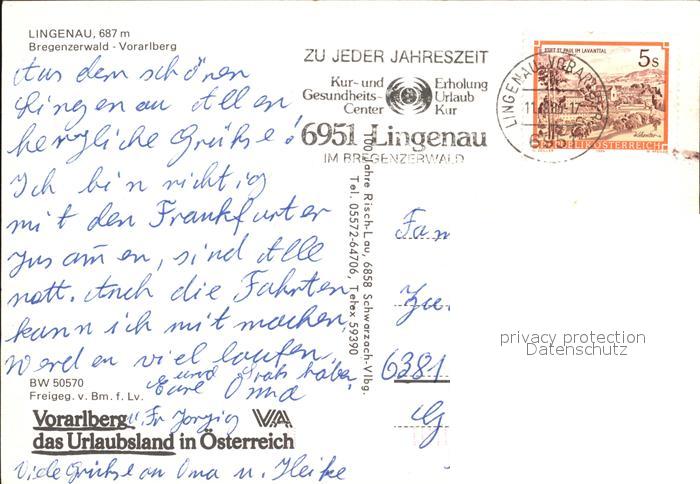 LINGENAU, 687 m
Bregenzerwald - Vorarlberg
Aus dem schönen
Lingenau Allen
herzliche Grüße!
Ich bin richtig
mit den Frankfurter
zusam̄en, sind Alle
nett. Auch die Fahrten
kann ich mit machen,
werden viel laufen,
und Spaß haben,
Eure Oma
u. Fr
Viele Grüße an Oma u. Heike
BW 50570
Freigeg. v. Bm. f. Lv.
Vorarlberg VA
das Urlaubsland in Österreich
100 Jahre Risch-Lau, 6858 Schwarzach-Vlbg.
Tel. 05572-64706, Telex 59390
ZU JEDER JAHRESZEIT
Kur- und Erholung
Gesundheits- Urlaub
Center Kur
6951 Lingenau
IM BREGENZERWALD
LINGENAU, VORARLBERG
6951
STIFT ST. PAUL IM LAVANTTAL
5 S
REPUBLIK ÖSTERREICH
Fam
6381
privacy protection
Datenschutz